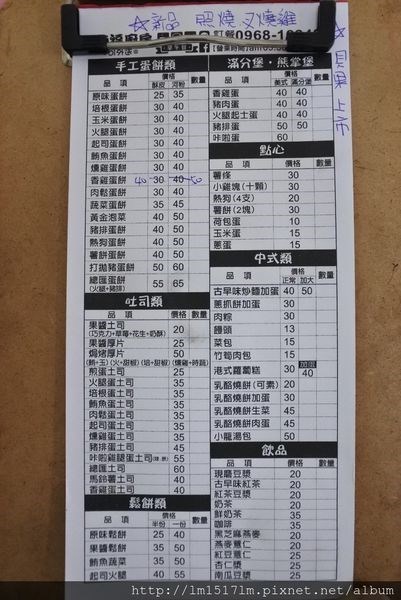 ☆新品 照燒叉燒雞
☆貝果上市
訂餐0968-1
手工蛋餅類
品項 價格 數量
酥皮 河粉
原味蛋餅 25 35
培根蛋餅 30 40
玉米蛋餅 30 40
火腿蛋餅 30 40
起司蛋餅 30 40
鮪魚蛋餅 30 40
燻雞蛋餅 30 40
香雞蛋餅 30 40
40 50
肉鬆蛋餅 30 40
蔬菜蛋餅 35 45
黃金泡菜 40 50
豬排蛋餅 40 50
熱狗蛋餅 40 50
薯餅蛋餅 40 50
打拋豬蛋餅 50 60
總匯蛋餅 55 65
(火腿+豬排)
吐司類
品項 價格 數量
果醬土司 20
(巧克力+草莓+花生+奶酥)
果醬厚片 25
焗烤厚片 50
(鮪+玉)(火+甜椒)(培+甜椒)(燻雞+時蔬)
煎蛋土司 25
火腿蛋土司 35
培根蛋土司 35
鮪魚蛋土司 35
肉鬆蛋土司 35
起司蛋土司 35
燻雞蛋土司 35
豬排蛋土司 45
咔啦雞腿蛋土司 55
總匯土司 60
馬鈴薯土司 40
香雞蛋土司 40
鬆餅類
品項 價格 數量
半份 一份
原味鬆餅 25 40
果醬鬆餅 35 50
鮪魚鬆餅 35 50
起司火腿 40 55
滿分堡・熊掌堡
品項 價格 數量
美式 滿分堡
香雞蛋 40 40
豬肉蛋 40 40
火腿起士蛋 40 40
豬排蛋 50 50
咔啦蛋 60
點心
品項 價格 數量
薯條 30
小雞塊(十顆) 30
熱狗(4支) 20
薯餅(2塊) 30
荷包蛋 10
玉米蛋 15
蔥蛋 15
中式類
品項 價格 數量
正常 加大
古早味炒麵加蛋 40 50
蔥抓餅加蛋 30
肉粽 30
饅頭 13
菜包 15
竹筍肉包 15
港式蘿蔔糕 30 加蛋 40
乳酪燒餅(可素) 20
乳酪燒餅加蛋 30
乳酪燒餅生菜 45
乳酪燒餅肉蛋 45
小籠湯包 50
飲品
品項 價格 數量
現磨豆漿 20
古早味紅茶 20
紅茶豆漿 20
奶茶 20
鮮奶茶 35
咖啡 35
黑芝麻燕麥 20
燕麥薏仁 20
紅豆薏仁 25
杏仁漿 25
南瓜豆漿 25
http://lm1517lm.pixnet.net/album